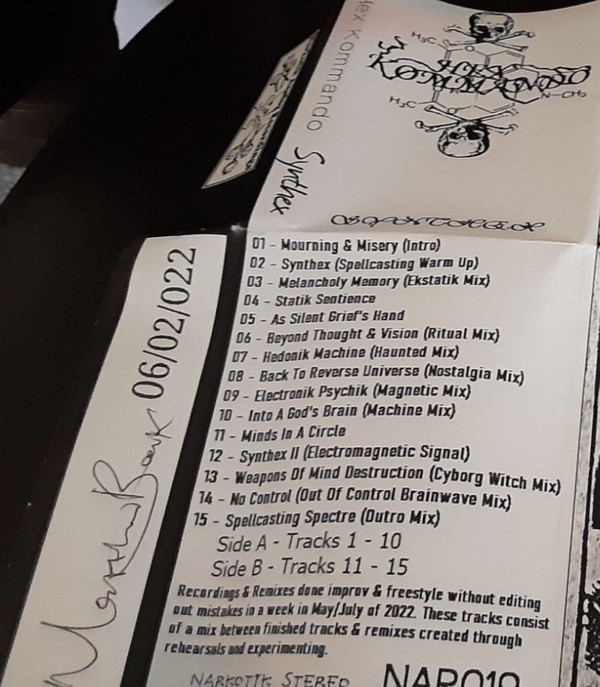 Hex Kommando
Synthex
H₃C
HEX
KOMMANDO
N-CH₃
H₃C
SYNTHEX
06/02/022
01 - Mourning & Misery (Intro)
02 - Synthex (Spellcasting Warm Up)
03 - Melancholy Memory (Ekstatik Mix)
04 - Statik Sentience
05 - As Silent Grief's Hand
06 - Beyond Thought & Vision (Ritual Mix)
07 - Hedonik Machine (Haunted Mix)
08 - Back To Reverse Universe (Nostalgia Mix)
09 - Electronik Psychik (Magnetic Mix)
10 - Into A God's Brain (Machine Mix)
11 - Minds In A Circle
12 - Synthex II (Electromagnetic Signal)
13 - Weapons Of Mind Destruction (Cyborg Witch Mix)
14 - No Control (Out Of Control Brainwave Mix)
15 - Spellcasting Spectre (Outro Mix)
Side A - Tracks 1 - 10
Side B - Tracks 11 - 15
Recordings & Remixes done improv & freestyle without editing
out mistakes in a week in May/July of 2022. These tracks consist
of a mix between finished tracks & remixes created through
rehearsals and experimenting.
NARKOTIK STEREO
NAR010